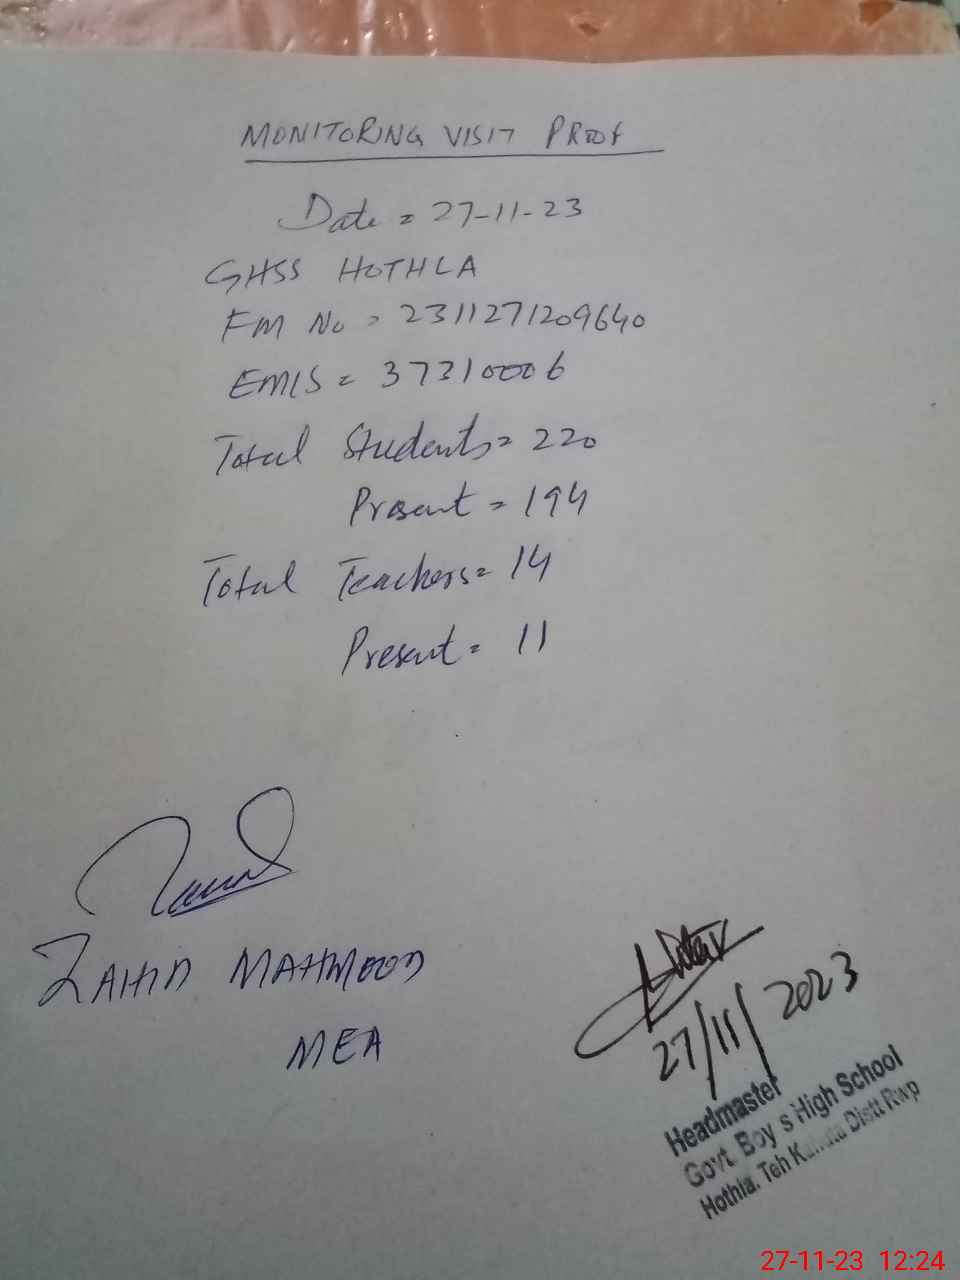 MONITORING VISIT PROOF
Date = 27-11-23
GHSS HOTHLA
FM No = 2311271209640
EMIS = 37310006
Total Students = 220
Present = 194
Total Teachers = 14
Present = 11
ZAHID MAHMOOD
MEA
27/11/2023
Headmaster
Govt. Boy s High School
Hothla. Teh Distt Rwp
27-11-23 12:24